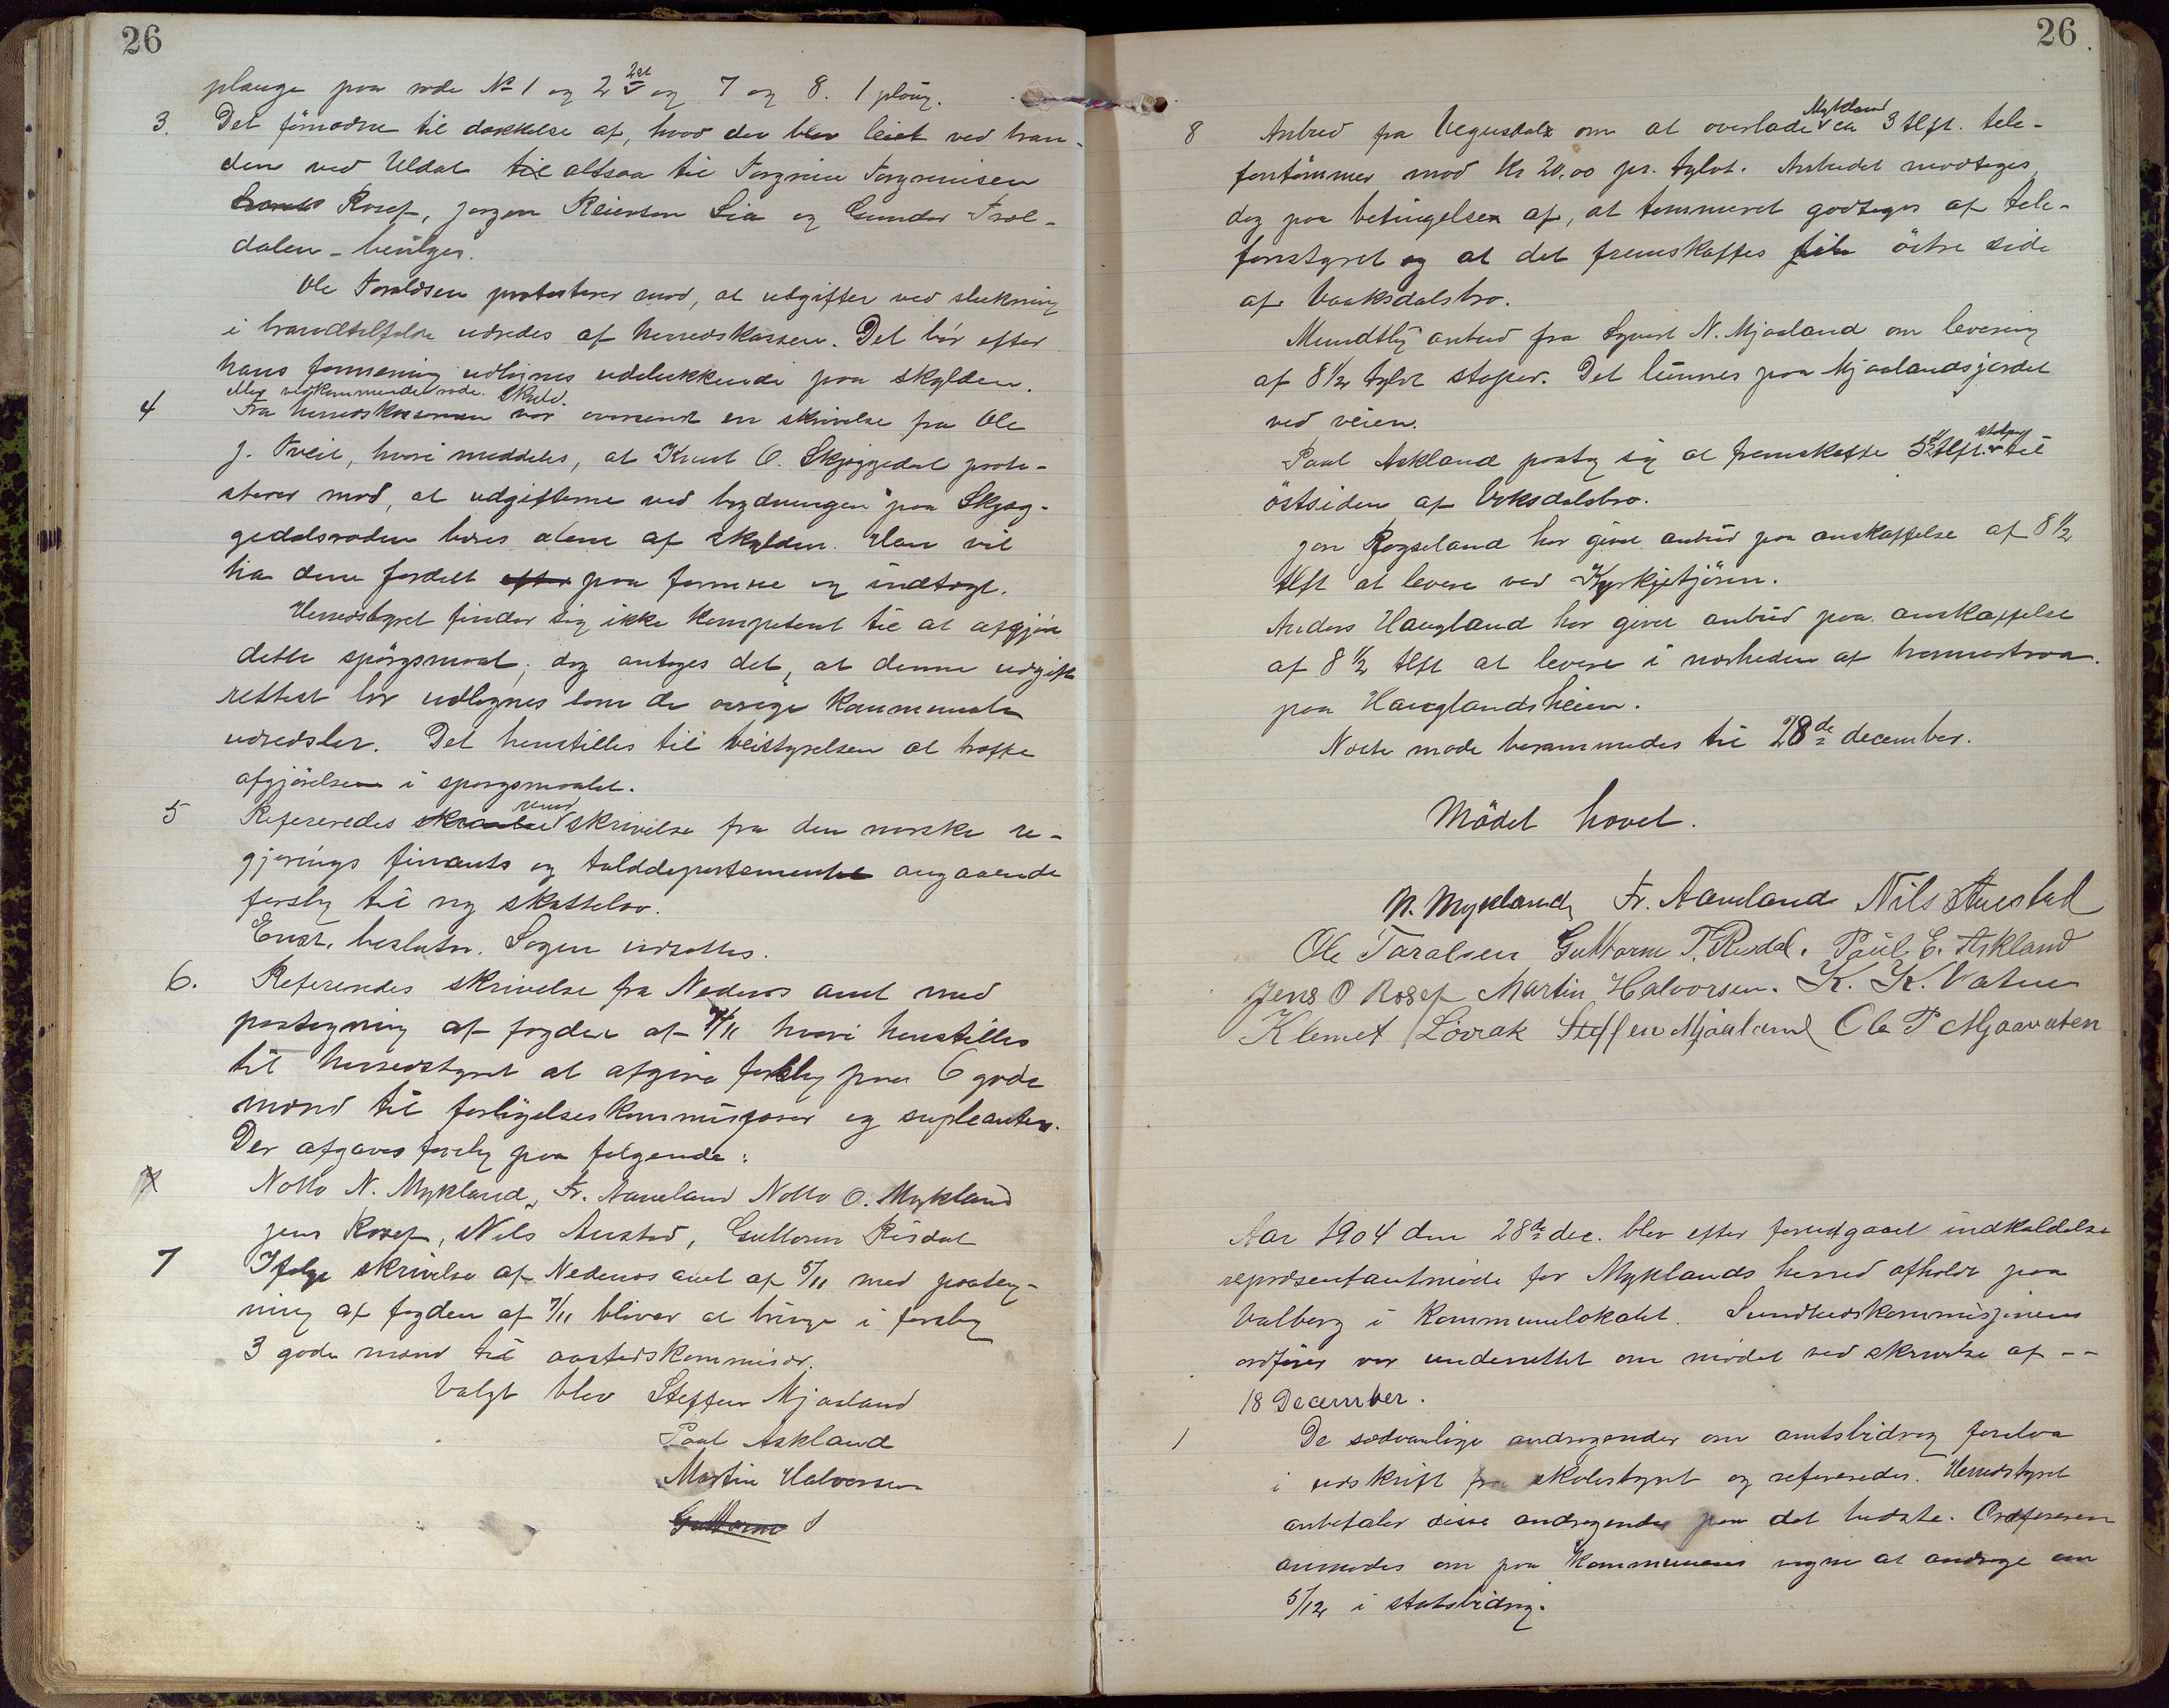 26
plauge paa rode No 1 og 2 2st og 7 og 8. 1 ploug.
3. Det fornødne til dækkelse af, hvad der blev leiet ved bran-
den ved Uldal til altsaa til Torgrim Torgrimsen
Rosef, Jørgen Reiersen Lia og Gunder Træl-
dalen - bevilges.
Ole Taraldsen protesterer mod, at utgifter ved slukning
i brandtilfælde udredes af herredskassen. Det bør efter
hans formening udlignes udelukkende paa skylden.
vedkommende rode. Skuld.
4 Fra herredskassereren var oversendt en skrivelse fra Ole
J. Tveit, hvori meddeles, at Knut O. Skjæggedal prote-
sterer mod, at udgifterne ved brydningen paa Skjæg-
gedalsroden bæres alene af skylden. Han vil
ha dem fordelt efter paa formue og indtægt.
Herredstyret finder sig ikke kompetent til at afgjøre
dette spørgsmaal; dog antages det, at denne udgift
rettest bør udlignes som de øvrige kommunale
udredsler. Det henstilles til veistyrelsen at træffe
afgjørelsen i spørgsmaalet.
5 Refereredes skrivelse fra den norske re-
gjerings finants og tolddepartement angaaende
forslag til ny skattelov.
Enst. beslutn. Sagen udsættes.
6. Refereredes skrivelse fra Nedenes amt med
paategning af fogden af 7/11 hvori henstilles
til herredstyret at afgive forslag paa 6 gode
mænd til forligelseskommisærer og supleanter.
Der afgaves forslag paa følgende:
Notto N. Mykland, Fr. Aaneland Notto O. Mykland
Jens Rosef, Nils Austad, Guttorm Risdal
7 Ifølge skrivelse af Nedenes amt af 5/11 med paateg-
ning af fogden af 7/11 bliver at bringe i forslag
3 gode mænd til aastedskommisær.
Valgt blev Steffen Mjaaland
Paul Askland
Martin Halvorsen
Guttorm
26.
8 Anbud fra Vegusdal om at overlade Mykland ca 3 tlft. tele-
fontømmer mod kr 20,00 pr. tylvt. Anbudet modtages
dog paa betingelse af, at tømmeret godtages af tele-
fonstyret og at det fremskaffes til østre side
af Vaaksdalsbro.
Mundtlig anbud fra Syvert N. Mjaaland om levering
af 8 1/2 tylvt stolper. Det lunnes paa Mjaalandsjordet
ved veien.
Paul Askland paatog sig at fremskaffe 5 1/2 tlft. stolper til
østsiden af Voksdalsbro.
Jon Røyseland har givet anbud paa anskaffelse af 8 1/2
tlft at levere ved Kyrkjetjøren.
Anders Haugland har givet anbud paa anskaffelse
af 8 1/2 tlft at levere i nærheden af
paa Hauglandsheien.
Næste møde berammedes til 28de december.
Mødet hævet.
N. Mykland Fr. Aaneland Nils Austad
Ole Taralsen Guttorm T. Risdal. Paul E. Askland
Jens O Rosef Martin Halvorsen. K. K. Vatne
Klemet Løvrak Steffen Mjaaland Ole T Mjaavaten
Aar 1904 den 28de dec. blev efter forudgaaet indkaldelse
repræsentantmøde for Myklands herred afholdt paa
Valberg i kommunelokalet. Sundhedskommisjonens
ordfører var underrettet om mødet ved skrivelse af --
18 December.
1 De sædvanlige andragender om amtsbidrag forelaa
i udskrift fra skolestyret og refereredes. Herredstyret
anbefaler disse andragender paa det bedste. Ordføreren
anmodes om paa kommunens vegne at andrage om
5/12 i statsbidrag.